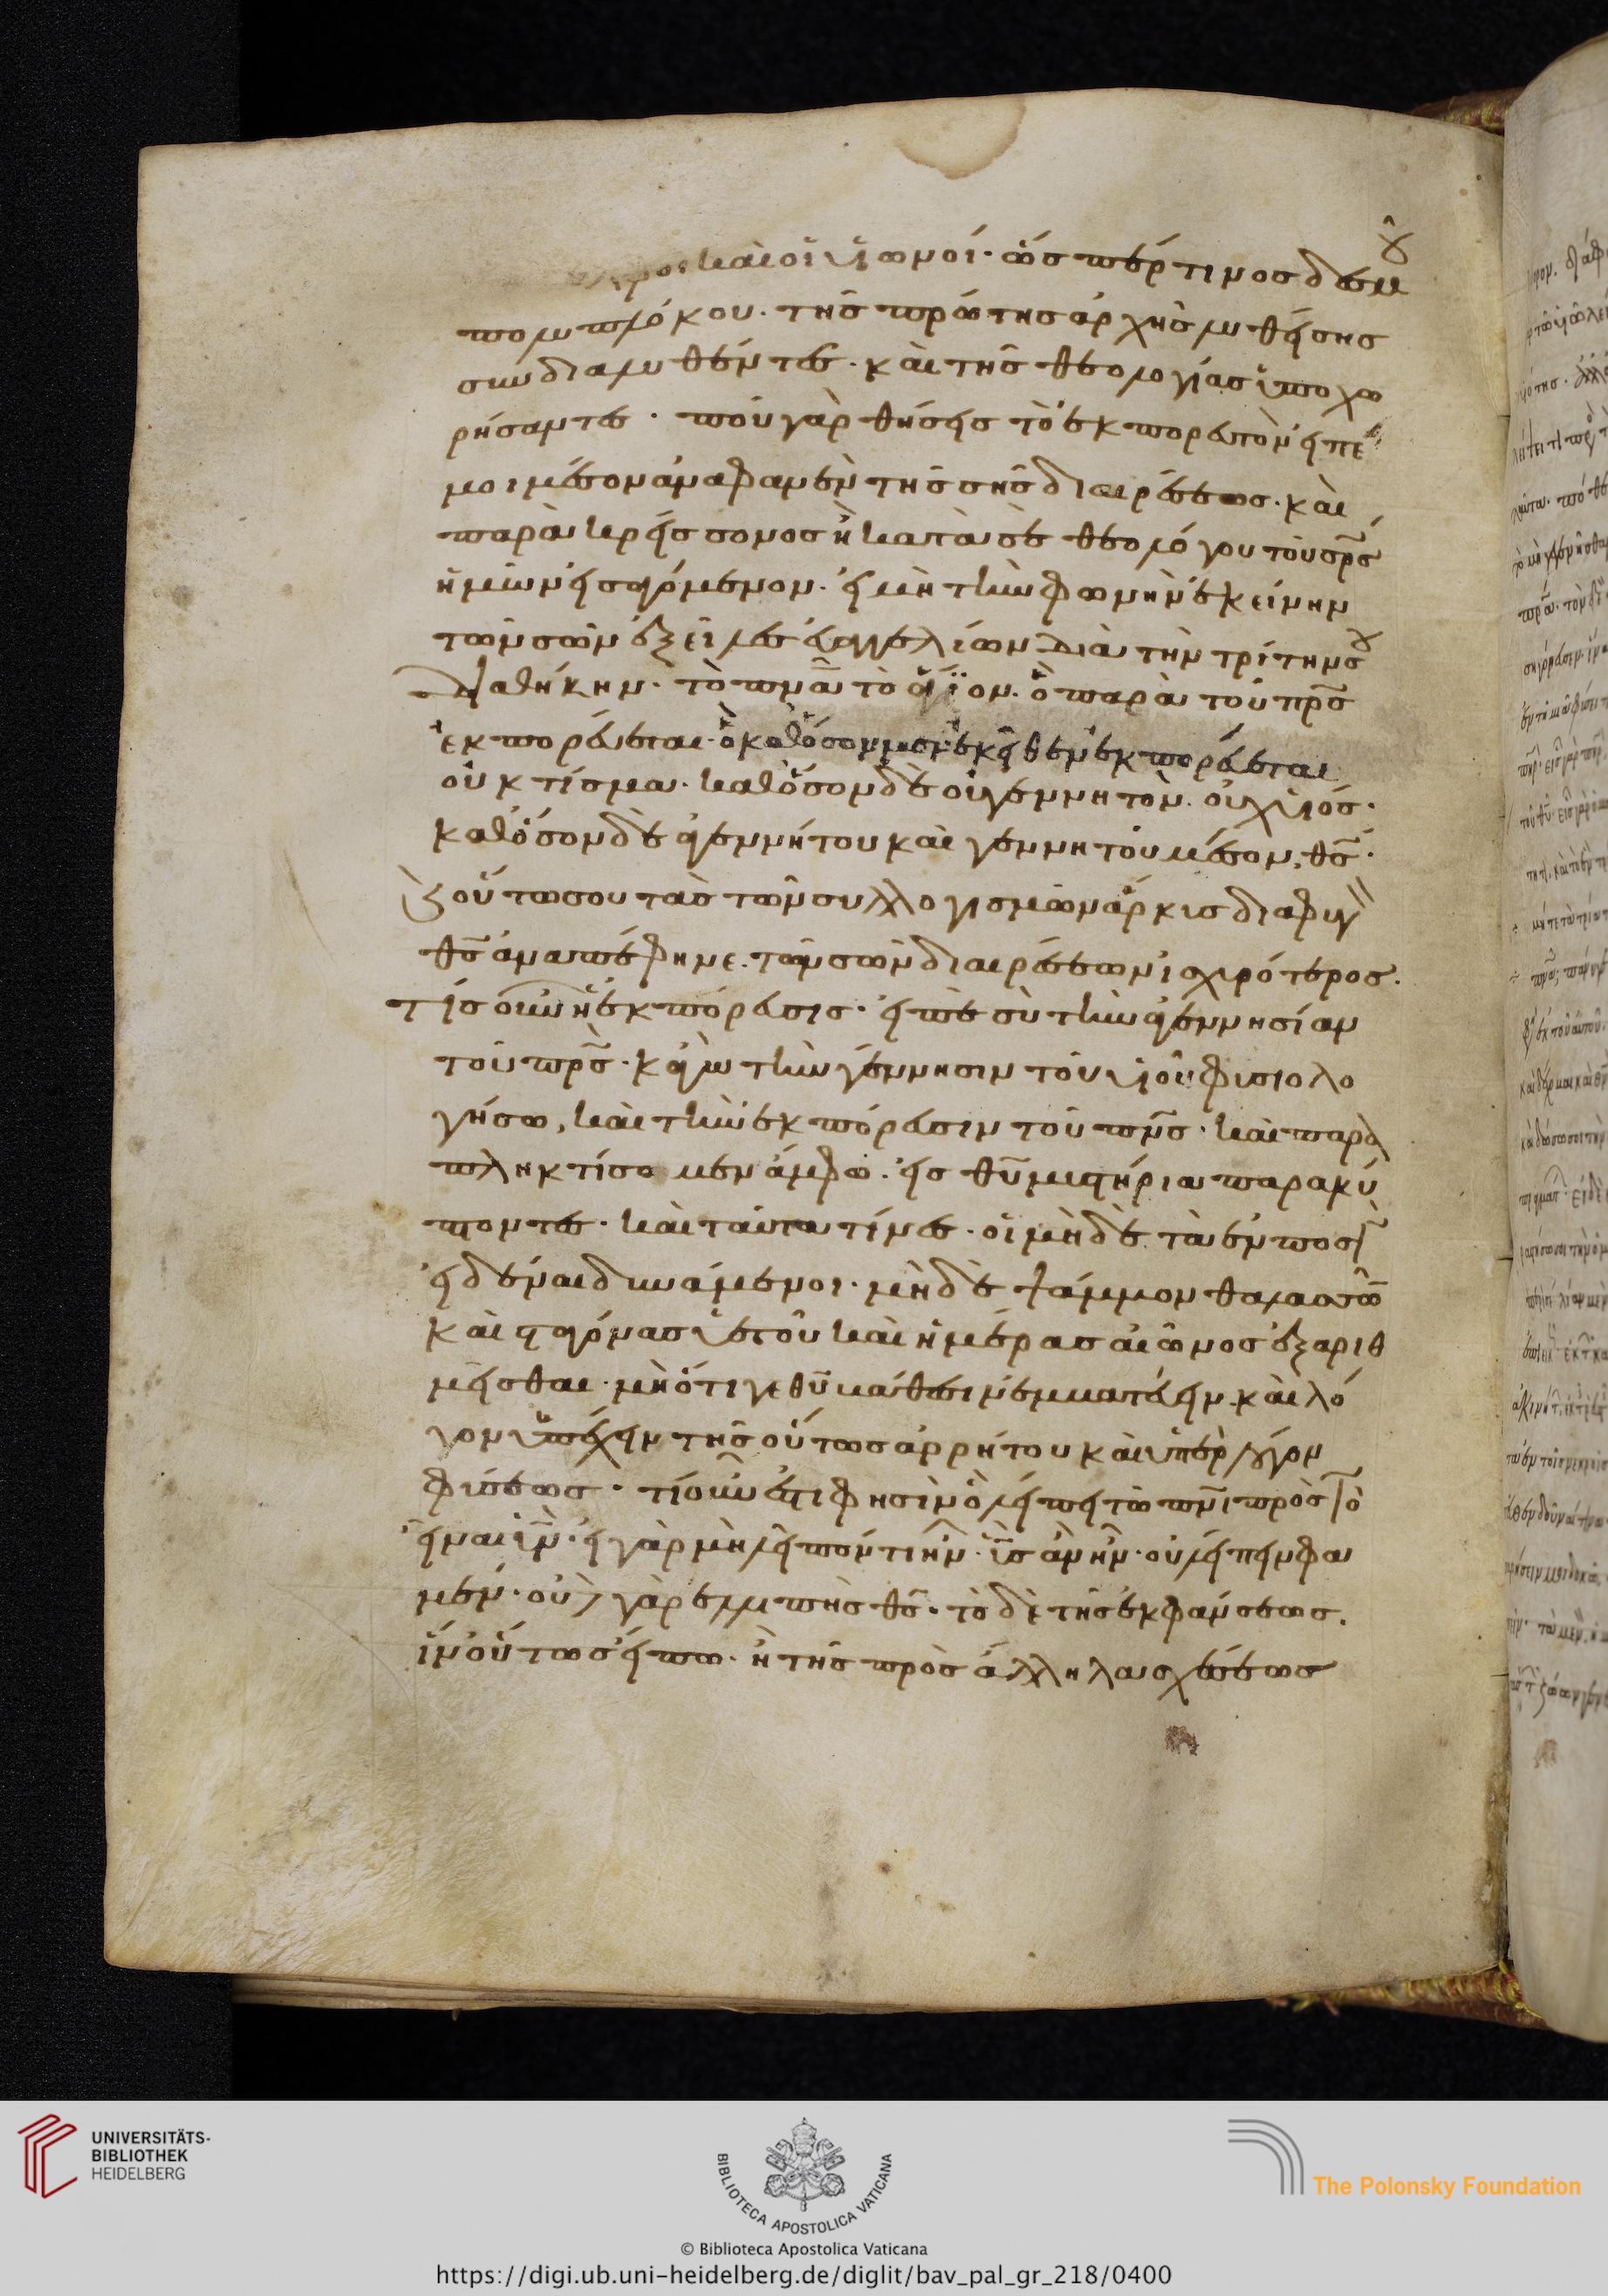 καὶ οἱ υἱωνοί· ὥσπέρ τινος δεσμοῦ
πολυπλόκου· τῆς πρώτης ἀρχῆς λυθείσης
συνδιαλυθέντες· καὶ τῆς θεολογίας ὑποχω
ρήσαντες· ποῦ γὰρ θήσεις τὸ ἐκπορευτὸν εἰπέ
μοι μέσον ἀναφανὲν τῆς σῆς διαιρέσεως· καὶ
παρὰ κρείσσονος ἢ κατὰ σὲ θεολόγου τοῦ σρ̅ς
ἡμῶν εἰσαγόμενον· εἰ μὴ τὴν φωνὴν ἐκείνην
τῶν σῶν ἐξεῖλες εὐαγγελίων διὰ τὴν τρίτην σου
διαθήκην· τὸ πν̅α τὸ ἅγϊον· ὃ παρὰ τοῦ πρ̅ς
ἐκπορεύεται· ὃ καθόσον μὲν ἐκεῖθεν ἐκπορεύεται
οὐ κτίσμα· καθόσον δὲ οὐ γεννητὸν· οὐχ υἱός·
καθόσον δὲ ἀγεννήτου καὶ γεννητοῦ μέσον, θς̅·
καὶ οὕτως σου τὰς τῶν συλλογισμῶν ἄρκυς διαφυγὼν
θς̅ ἀναπέφηνε· τῶν σῶν διαιρέσεων ἰσχυρότερος·
τίς οὖν ἡ ἐκπόρευσις· εἰπὲ σὺ τὴν ἀγεννησίαν
τοῦ πρ̅ς· κἀγὼ τὴν γέννησιν τοῦ υἱοῦ φυσιολο
γήσω, καὶ τὴν ἐκπόρευσιν τοῦ πν̅ς· καὶ παρα
πληκτίσομεν ἄμφω· εἰς θυ̅ μυστήρια παρακύ
πτοντες· καὶ ταῦτα τίνες· οἱ μηδὲ τὰ ἐν ποσὶν
εἰδέναι δυνάμενοι· μηδὲ ψάμμον θαλασσῶν
καὶ σταγόνας ὑετοῦ καὶ ἡμέρας αἰῶνος ἐξαριθ
μεῖσθαι· μὴ ὅτι γε θυ̅ βάθεσιν ἐμβατεύειν· καὶ λό
γον ὑπέχειν τῆς οὕτως ἀρρήτου καὶ ὑπὲρ λόγον
φύσεως· τί οὖν ἐστι φησὶν ὃ λείπει τῶ πν̅ι πρὸς τὸ
εἶναι υν̅· εἰ γὰρ μὴ λεῖπόν τι ἦν· υς̅ ἂν ἦν· οὐ λείπειν φα
μέν· οὐδὲ γὰρ ἐλλιπὴς θς̅· τὸ δὲ τῆς ἐκφάνσεως·
ἵν' οὕτως εἴπω· ἢ τῆς πρὸς ἄλληλα σχέσεως
UNIVERSITÄTS-
BIBLIOTHEK
HEIDELBERG
BIBLIOTECA APOSTOLICA VATICANA
The Polonsky Foundation
© Biblioteca Apostolica Vaticana
https://digi.ub.uni-heidelberg.de/diglit/bav_pal_gr_218/0400